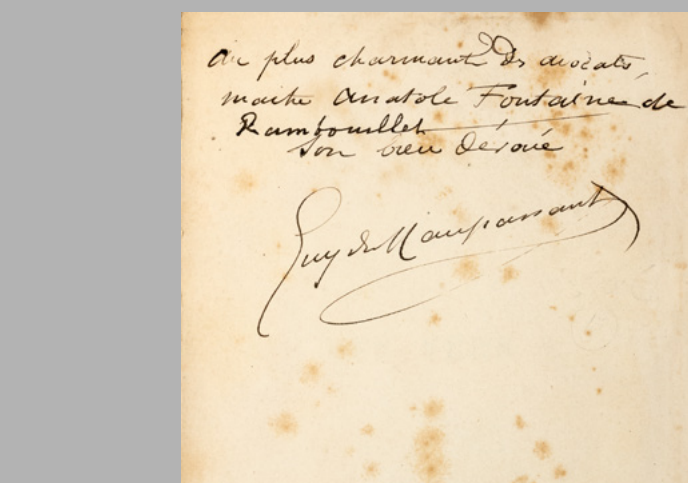 Au plus charmant des avocats,
maitre Anatole Fontaine de
Rambouillet
Son bien dévoué
Guy de Maupassant